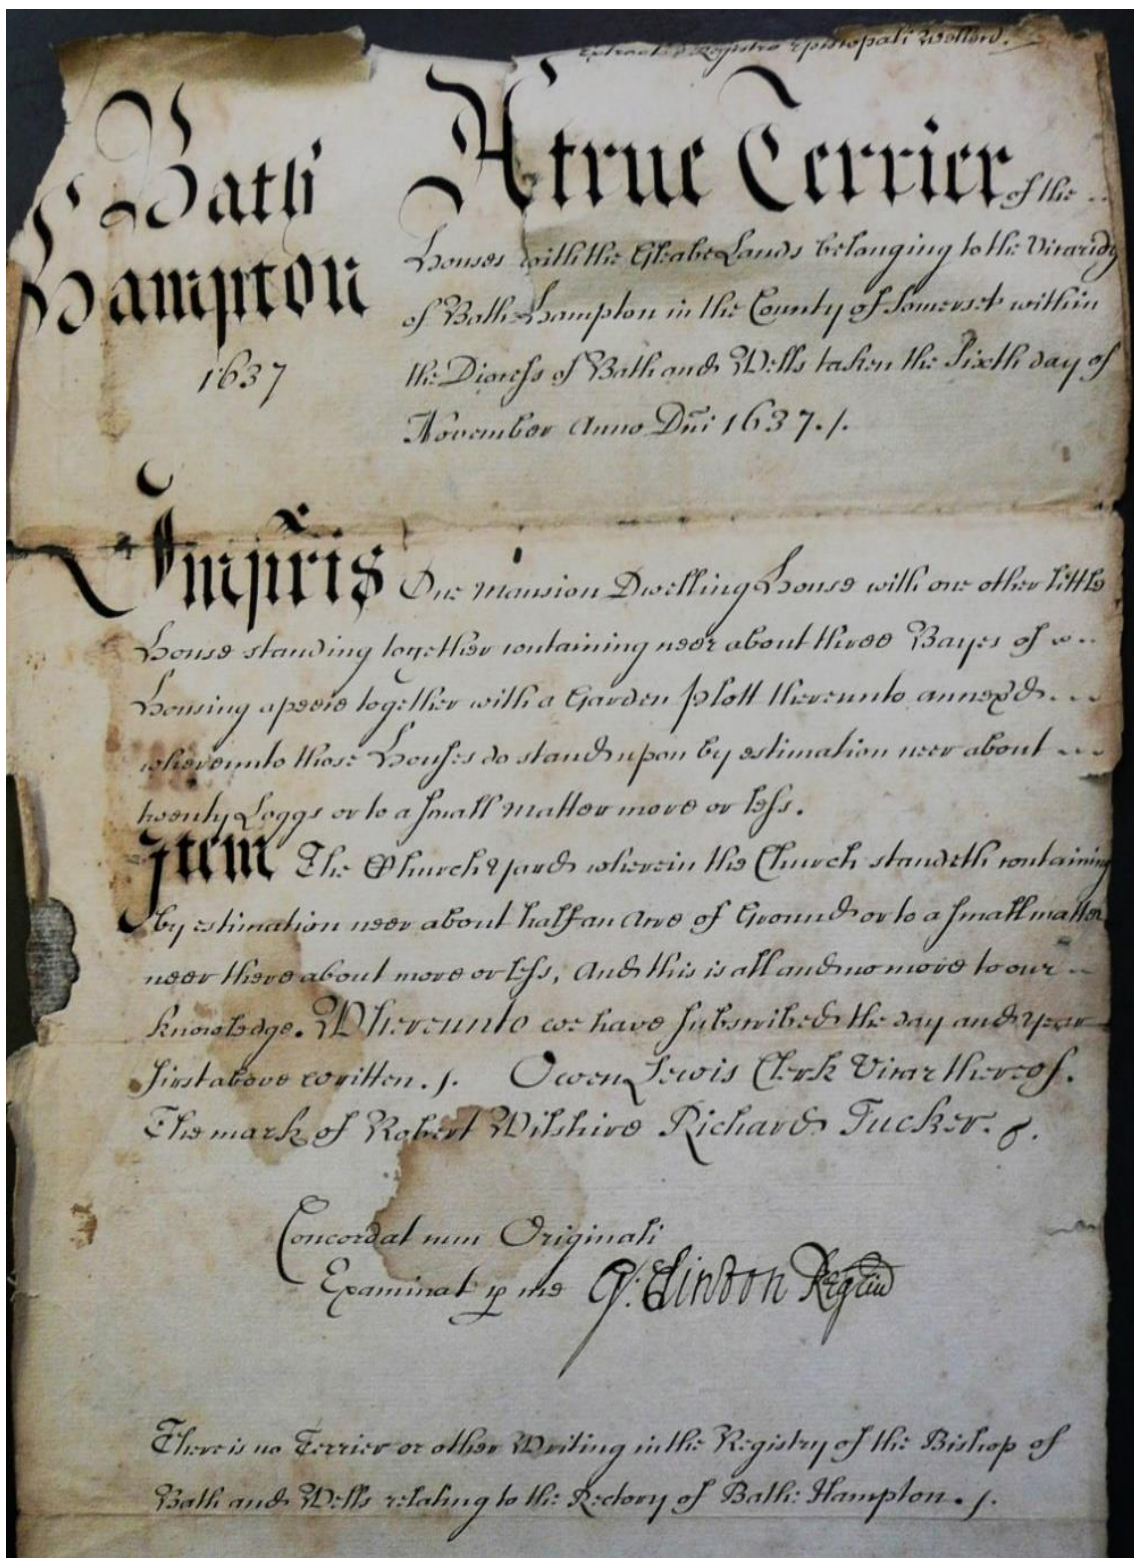 Extract è Registro Episcopali Wellen.
Bath
Hampton
1637
A true Terrier of the
Houses with the Gleabe Lands belonging to the Vicaridg
of Bath Hampton in the County of Somerset within
the Diocess of Bath and Wells taken the Sixth day of
November Anno Dñi 1637./.
Impris One Mansion Dwelling House with one other little
House standing together containing neer about three Bayes of
Housing apeece together with a Garden plott thereunto annexed
whereunto those Houses do stand upon by estimation neer about
twenty Loggs or to a small matter more or less.
Item The Church yard wherein the Church standeth containing
by estimation neer about half an Acre of Ground or to a small matter
neer there about more or less, And this is all and no more to our
knowledge. Whereunto we have subscribed the day and year
first above written./. Owen Lewis Clerk Vicar thereof.
The mark of Robert Wilshire Richard Tucker.
Concordat cum Originali
Examinat p me
There is no Terrier or other Writing in the Registry of the Bishop of
Bath and Wells relating to the Rectory of Bath Hampton./.